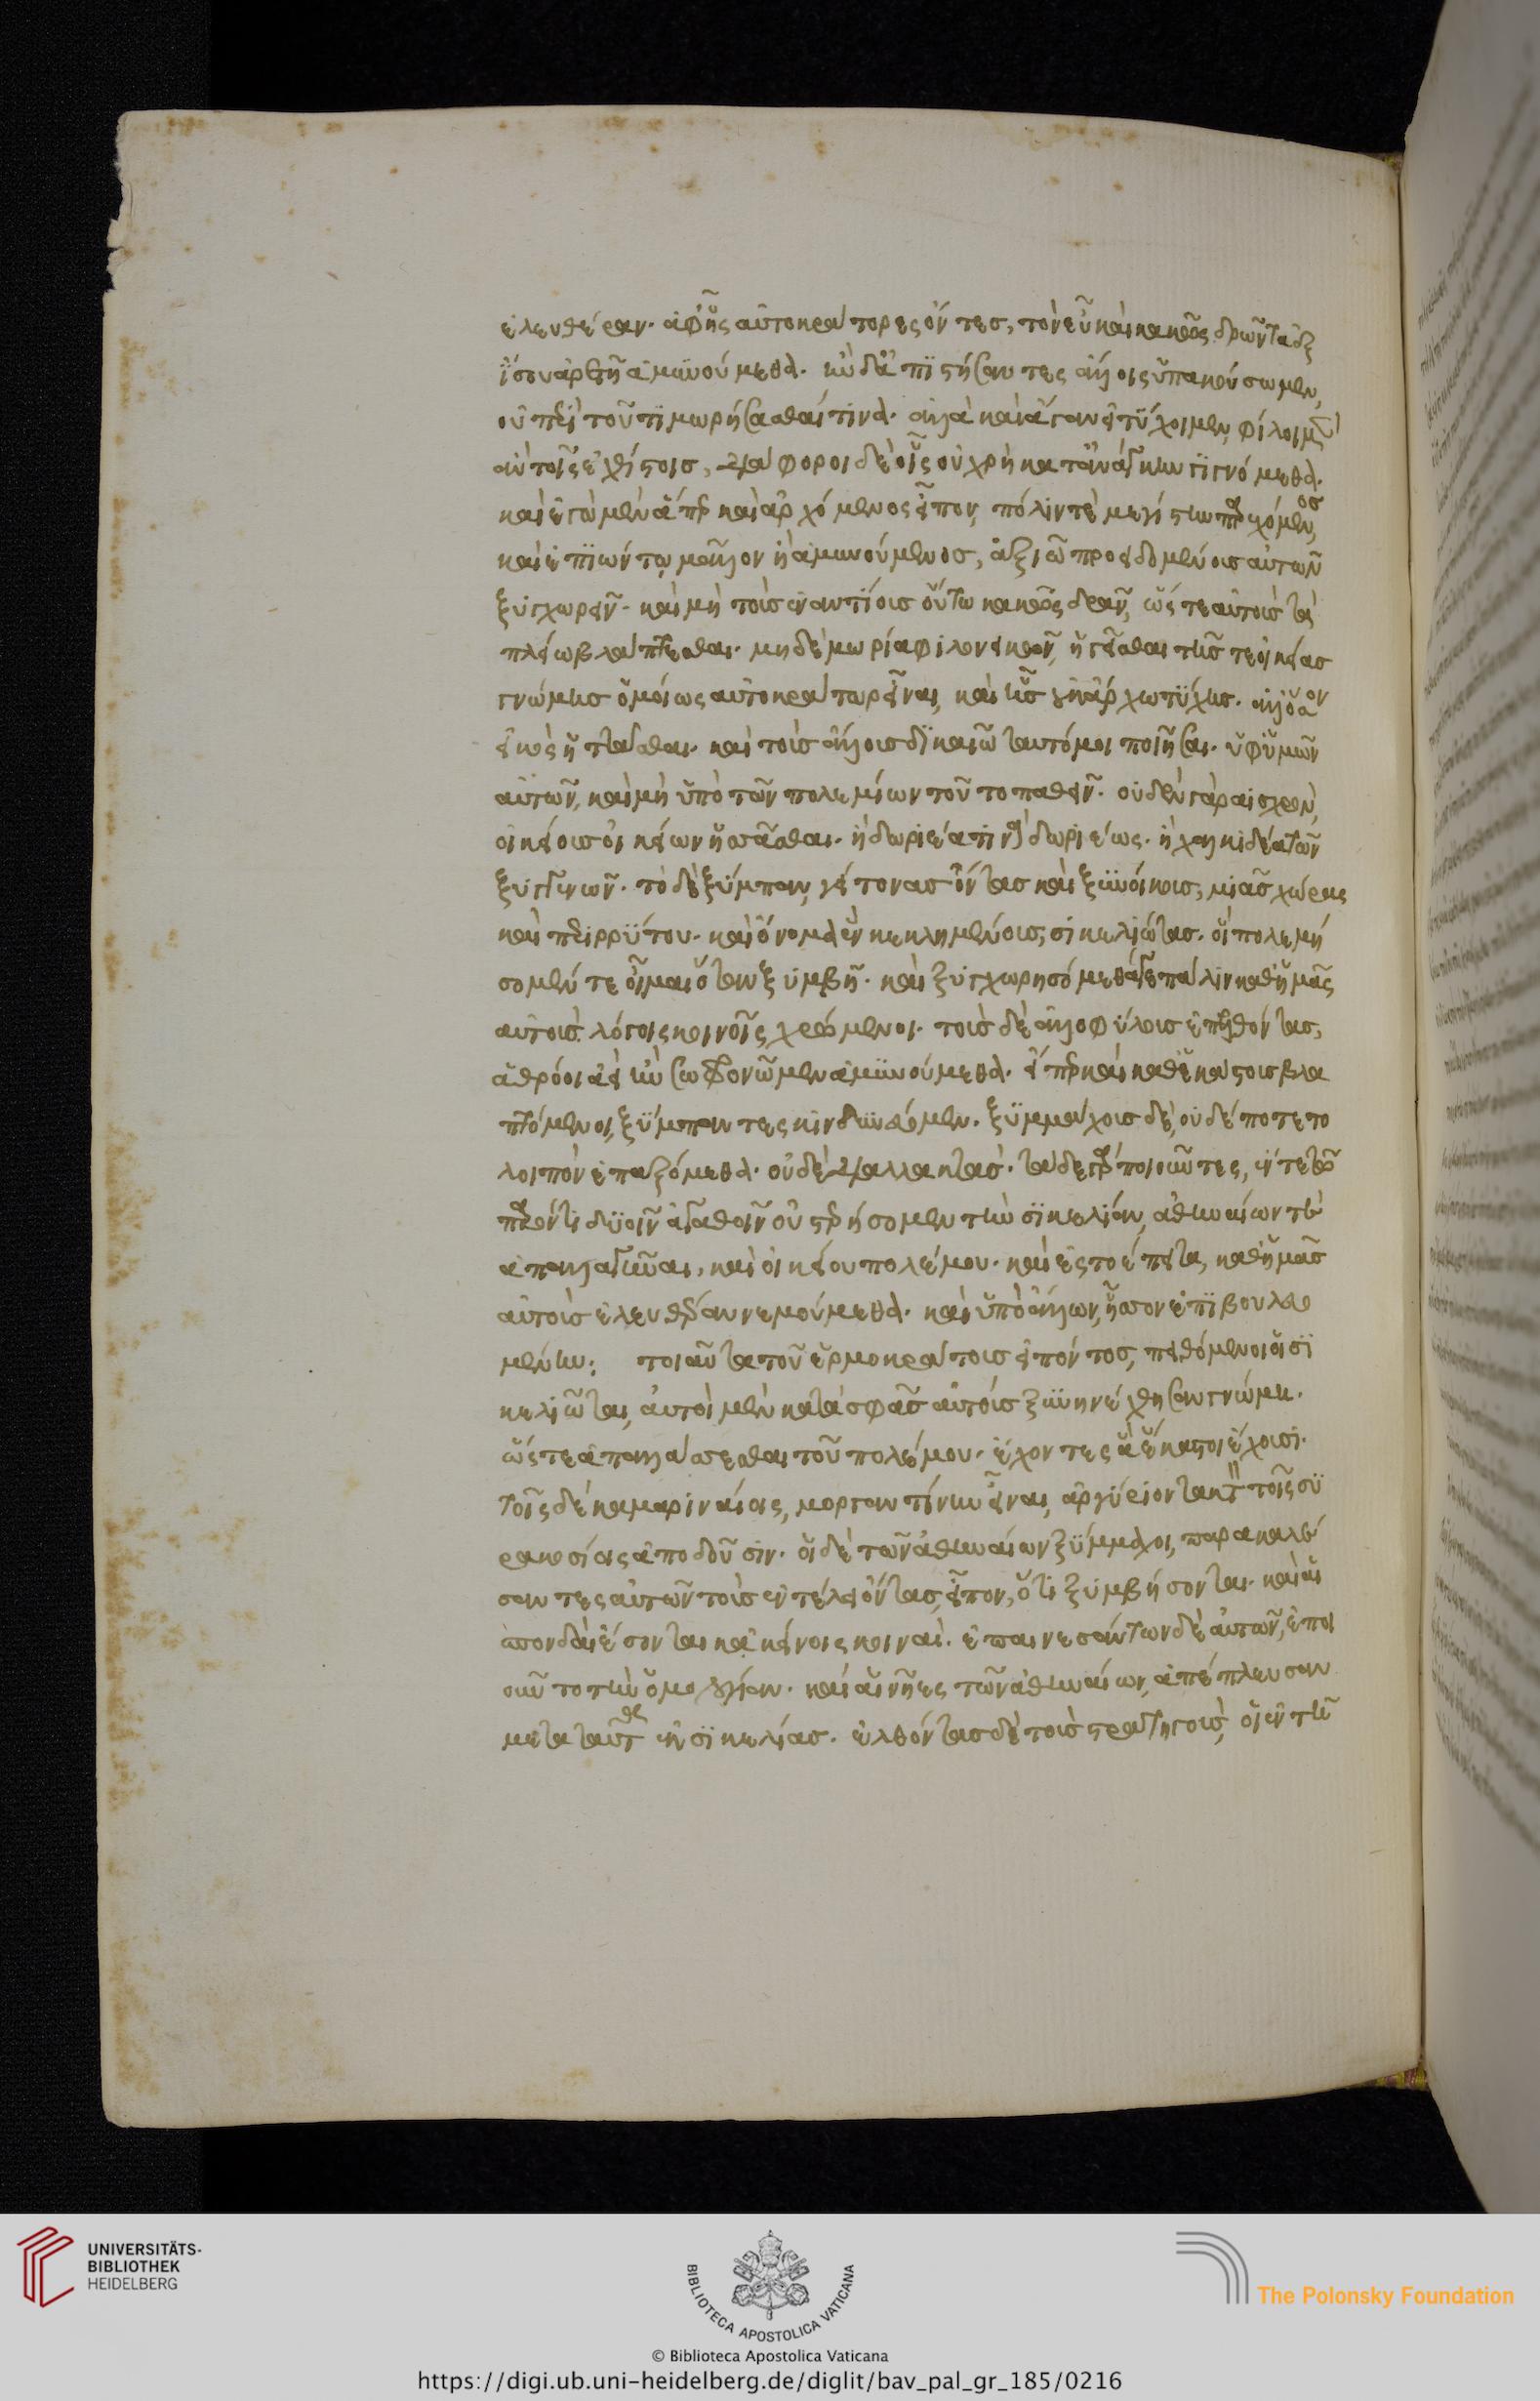 ἐλευθέραν· ἀφ' ἧς αὐτοκράτορες ὄντες, τὸν εὖ καὶ κακῶς δρῶντα ἐξ
ἴσου ἀρετῇ ἀμυνούμεθα· ἢν δ' ἀπιστήσαντες ἄλλοις ὑπακούσωμεν,
οὐ περὶ τοῦ τιμωρήσασθαί τινα· ἀλλὰ καὶ ἄγαν εἰ τύχοιμεν, φίλοι μὲν
ἂν τοῖς ἐχθίστοις, διάφοροι δὲ οἷς οὐ χρὴ κατ' ἀνάγκην γιγνόμεθα·
καὶ ἐγὼ μὲν ἅπερ καὶ ἀρχόμενος εἶπον, πόλιν τὲ μεγίστην παρεχόμενος,
καὶ ἐπιών τῳ μᾶλλον ἢ ἀμυνούμενος, ἀξιῶ προειδομένους αὐτῶν
ξυγχωρεῖν· καὶ μὴ τοὺς ἐναντίους οὕτω κακῶς δρᾶν, ὥστε αὐτοὺς τὰ
πλείω βλάπτεσθαι· μηδὲ μωρίᾳ φιλονεικῶν, ἡγεῖσθαι τῆς τε οἰκείας
γνώμης ὁμοίως αὐτοκράτωρ εἶναι, καὶ ἧς οὐκ ἄρχω τύχης· ἀλλ' ὅσον
εἰκὸς ἡττᾶσθαι· καὶ τοὺς ἄλλους δικαιῶ ταυτό μοι ποιῆσαι· ὑφ' ὑμῶν
αὐτῶν, καὶ μὴ ὑπὸ τῶν πολεμίων τοῦτο παθεῖν· οὐδὲν γὰρ αἰσχρὸν,
οἰκείους οἰκείων ἡσσᾶσθαι· ἢ δωριέα τινὰ δωριέως· ἢ χαλκιδέα τῶν
ξυγγενῶν· τὸ δὲ ξύμπαν, γείτονας ὄντας καὶ ξυνοίκους, μιᾶς χώρας
καὶ περιρρύτου· καὶ ὄνομα ἓν κεκλημένους, σικελιώτας· οἳ πολεμή
σομέν τε οἶμαι ὅταν ξυμβῇ· καὶ ξυγχωρησόμεθά γε πάλιν καθ' ἡμᾶς
αὐτοὺς λόγοις κοινοῖς χρώμενοι· τοὺς δὲ ἀλλοφύλους ἐπελθόντας,
ἀθρόοι ἀεὶ ἢν σωφρονῶμεν ἀμυνούμεθα· εἴπερ καὶ καθ' ἑκάστους βλα
πτόμενοι, ξύμπαντες κινδυνεύομεν· ξυμμάχους δὲ, οὐδέποτε το
λοιπὸν ἐπαξόμεθα· οὐδὲ διαλλακτάς· τάδε γὰρ ποιοῦντες, ἔν τε τῷ
παρόντι δυοῖν ἀγαθοῖν οὐ στερήσομεν τὴν σικελίαν, ἀθηναίων τὲ
ἀπαλλαγῆναι, καὶ οἰκείου πολέμου· καὶ ἐς το ἔπειτα, καθ' ἡμᾶς
αὐτοὺς ἐλευθέραν νεμούμεθα· καὶ ὑπὸ ἄλλων, ἧσσον ἐπιβουλευο
μένην: τοιαῦτα τοῦ ἑρμοκράτους εἰπόντος, πειθόμενοι οἱ σι
κελιῶται, αὐτοὶ μὲν κατὰ σφᾶς αὐτοὺς ξυνηνέχθησαν γνώμη·
ὥστε ἀπαλλάσσεσθαι τοῦ πολέμου· ἔχοντες ἃ ἕκαστοι ἔχουσι·
τοῖς δὲ καμαριναίοις, μοργαντίνην εἶναι, ἀργύριον τακτὸν τοῖς συ
ρακοσίοις ἀποδοῦσιν· οἱ δὲ τῶν ἀθηναίων ξύμμαχοι, παρακαλέ
σαντες αὐτῶν τοὺς ἐν τέλει ὄντας, εἶπον, ὅτι ξυμβήσονται· καὶ αἱ
σπονδαὶ ἔσονται κἀκείνοις κοιναί· ἐπαινεσάντων δὲ αὐτῶν, ἐποι
οῦντο τὴν ὁμολογίαν· καὶ αἱ νῆες τῶν ἀθηναίων, ἀπέπλευσαν
μετα ταῦτα ἐκ σικελίας· ἐλθόντας δὲ τοὺς στρατηγοὺς, οἱ ἐν τῇ
UNIVERSITÄTS-
BIBLIOTHEK
HEIDELBERG
BIBLIOTECA APOSTOLICA VATICANA
The Polonsky Foundation
© Biblioteca Apostolica Vaticana
https://digi.ub.uni-heidelberg.de/diglit/bav_pal_gr_185/0216